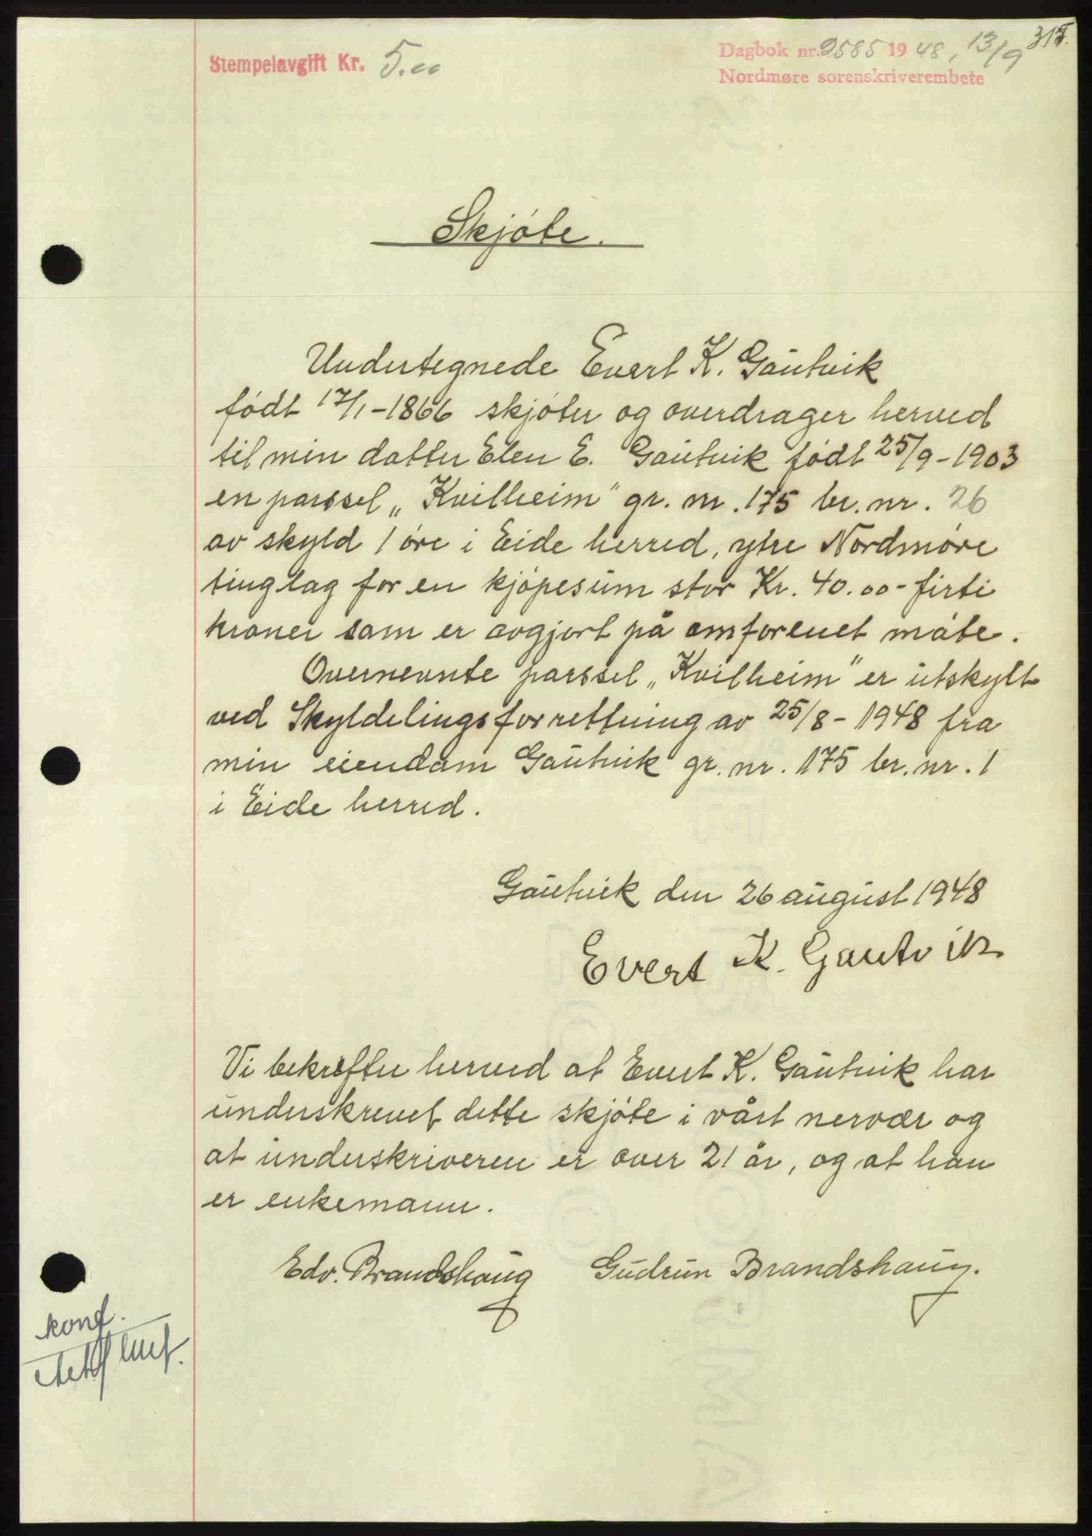 317.
Stempelavgift Kr. 5.00
Dagbok nr. 2585 1948, 13/9
Nordmøre sorenskriverembete
Skjöte.
Undertegnede Evert K. Gautvik
født 17/1-1866 skjöter og overdrager herved
til min datter Elen E. Gautvik født 25/9-1903
en parssel „Kvilheim" gr. nr. 175 br. nr. 26
av skyld 1 öre i Eide herred, ytre Nordmöre
tinglag for en kjöpesum stor Kr. 40.00 - firti
kroner som er avgjort på omforenet måte.
Overnevnte parssel „Kvilheim" er utskylt
ved Skyldelingsforrettning av 25/8-1948 fra
min eiendom Gautvik gr. nr. 175 br. nr. 1
i Eide herred.
Gautvik den 26 august 1948
Evert K. Gautvik
Vi bekrefter herved at Evert K. Gautvik har
underskrevet dette skjöte i vårt nervær og
at underskriveren er over 21 år, og at han
er enkemann.
Edv. Brandshaug Gudrun Brandshaug.
konf.